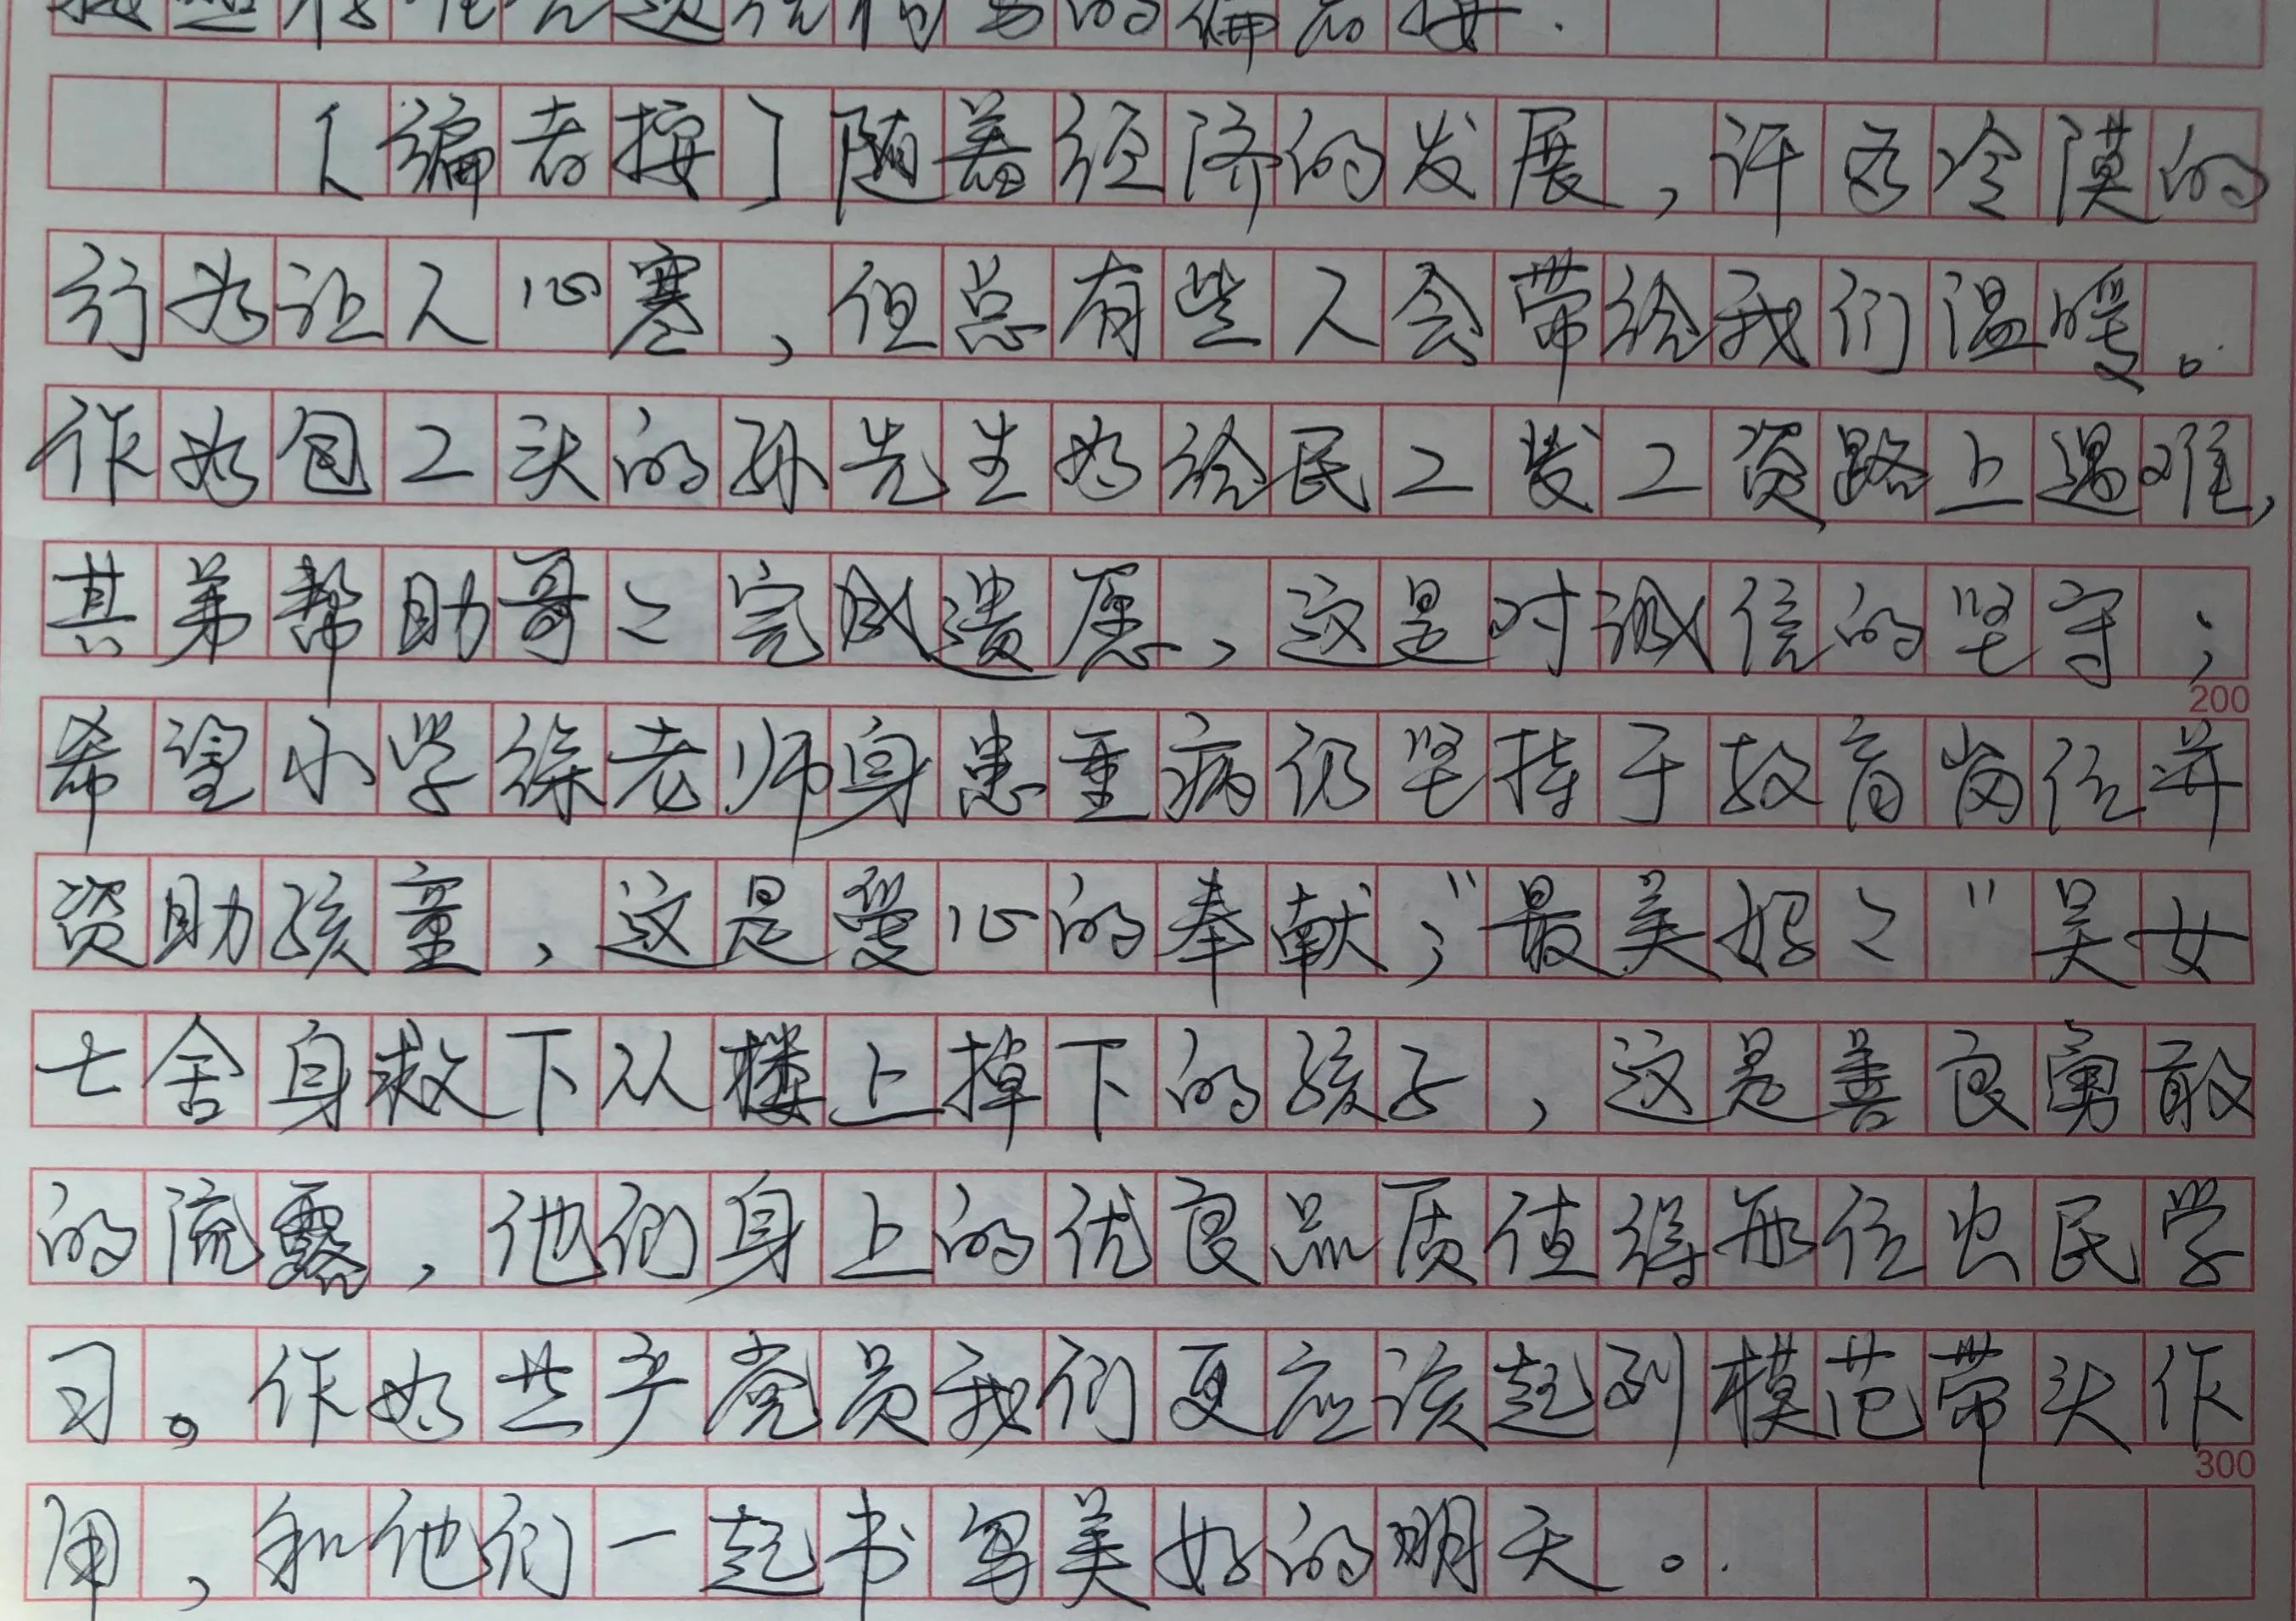 的编者按.
〔编者按〕随着经济的发展,许多冷漠的
行为让人心寒,但总有些人会带给我们温暖。
作为包工头的孙先生为给民工发工资路上遇难,
其弟帮助哥〻完成遗愿,这是对诚信的坚守;
200
希望小学徐老师身患重病仍坚持于教育岗位并
资助孩童,这是爱心的奉献;"最美妈〻"吴女
士舍身救下从楼上掉下的孩子,这是善良勇敢
的流露,他们身上的优良品质值得每位公民学
习。作为共产党员我们更应该起到模范带头作
300
用,和他们一起书写美好的明天。